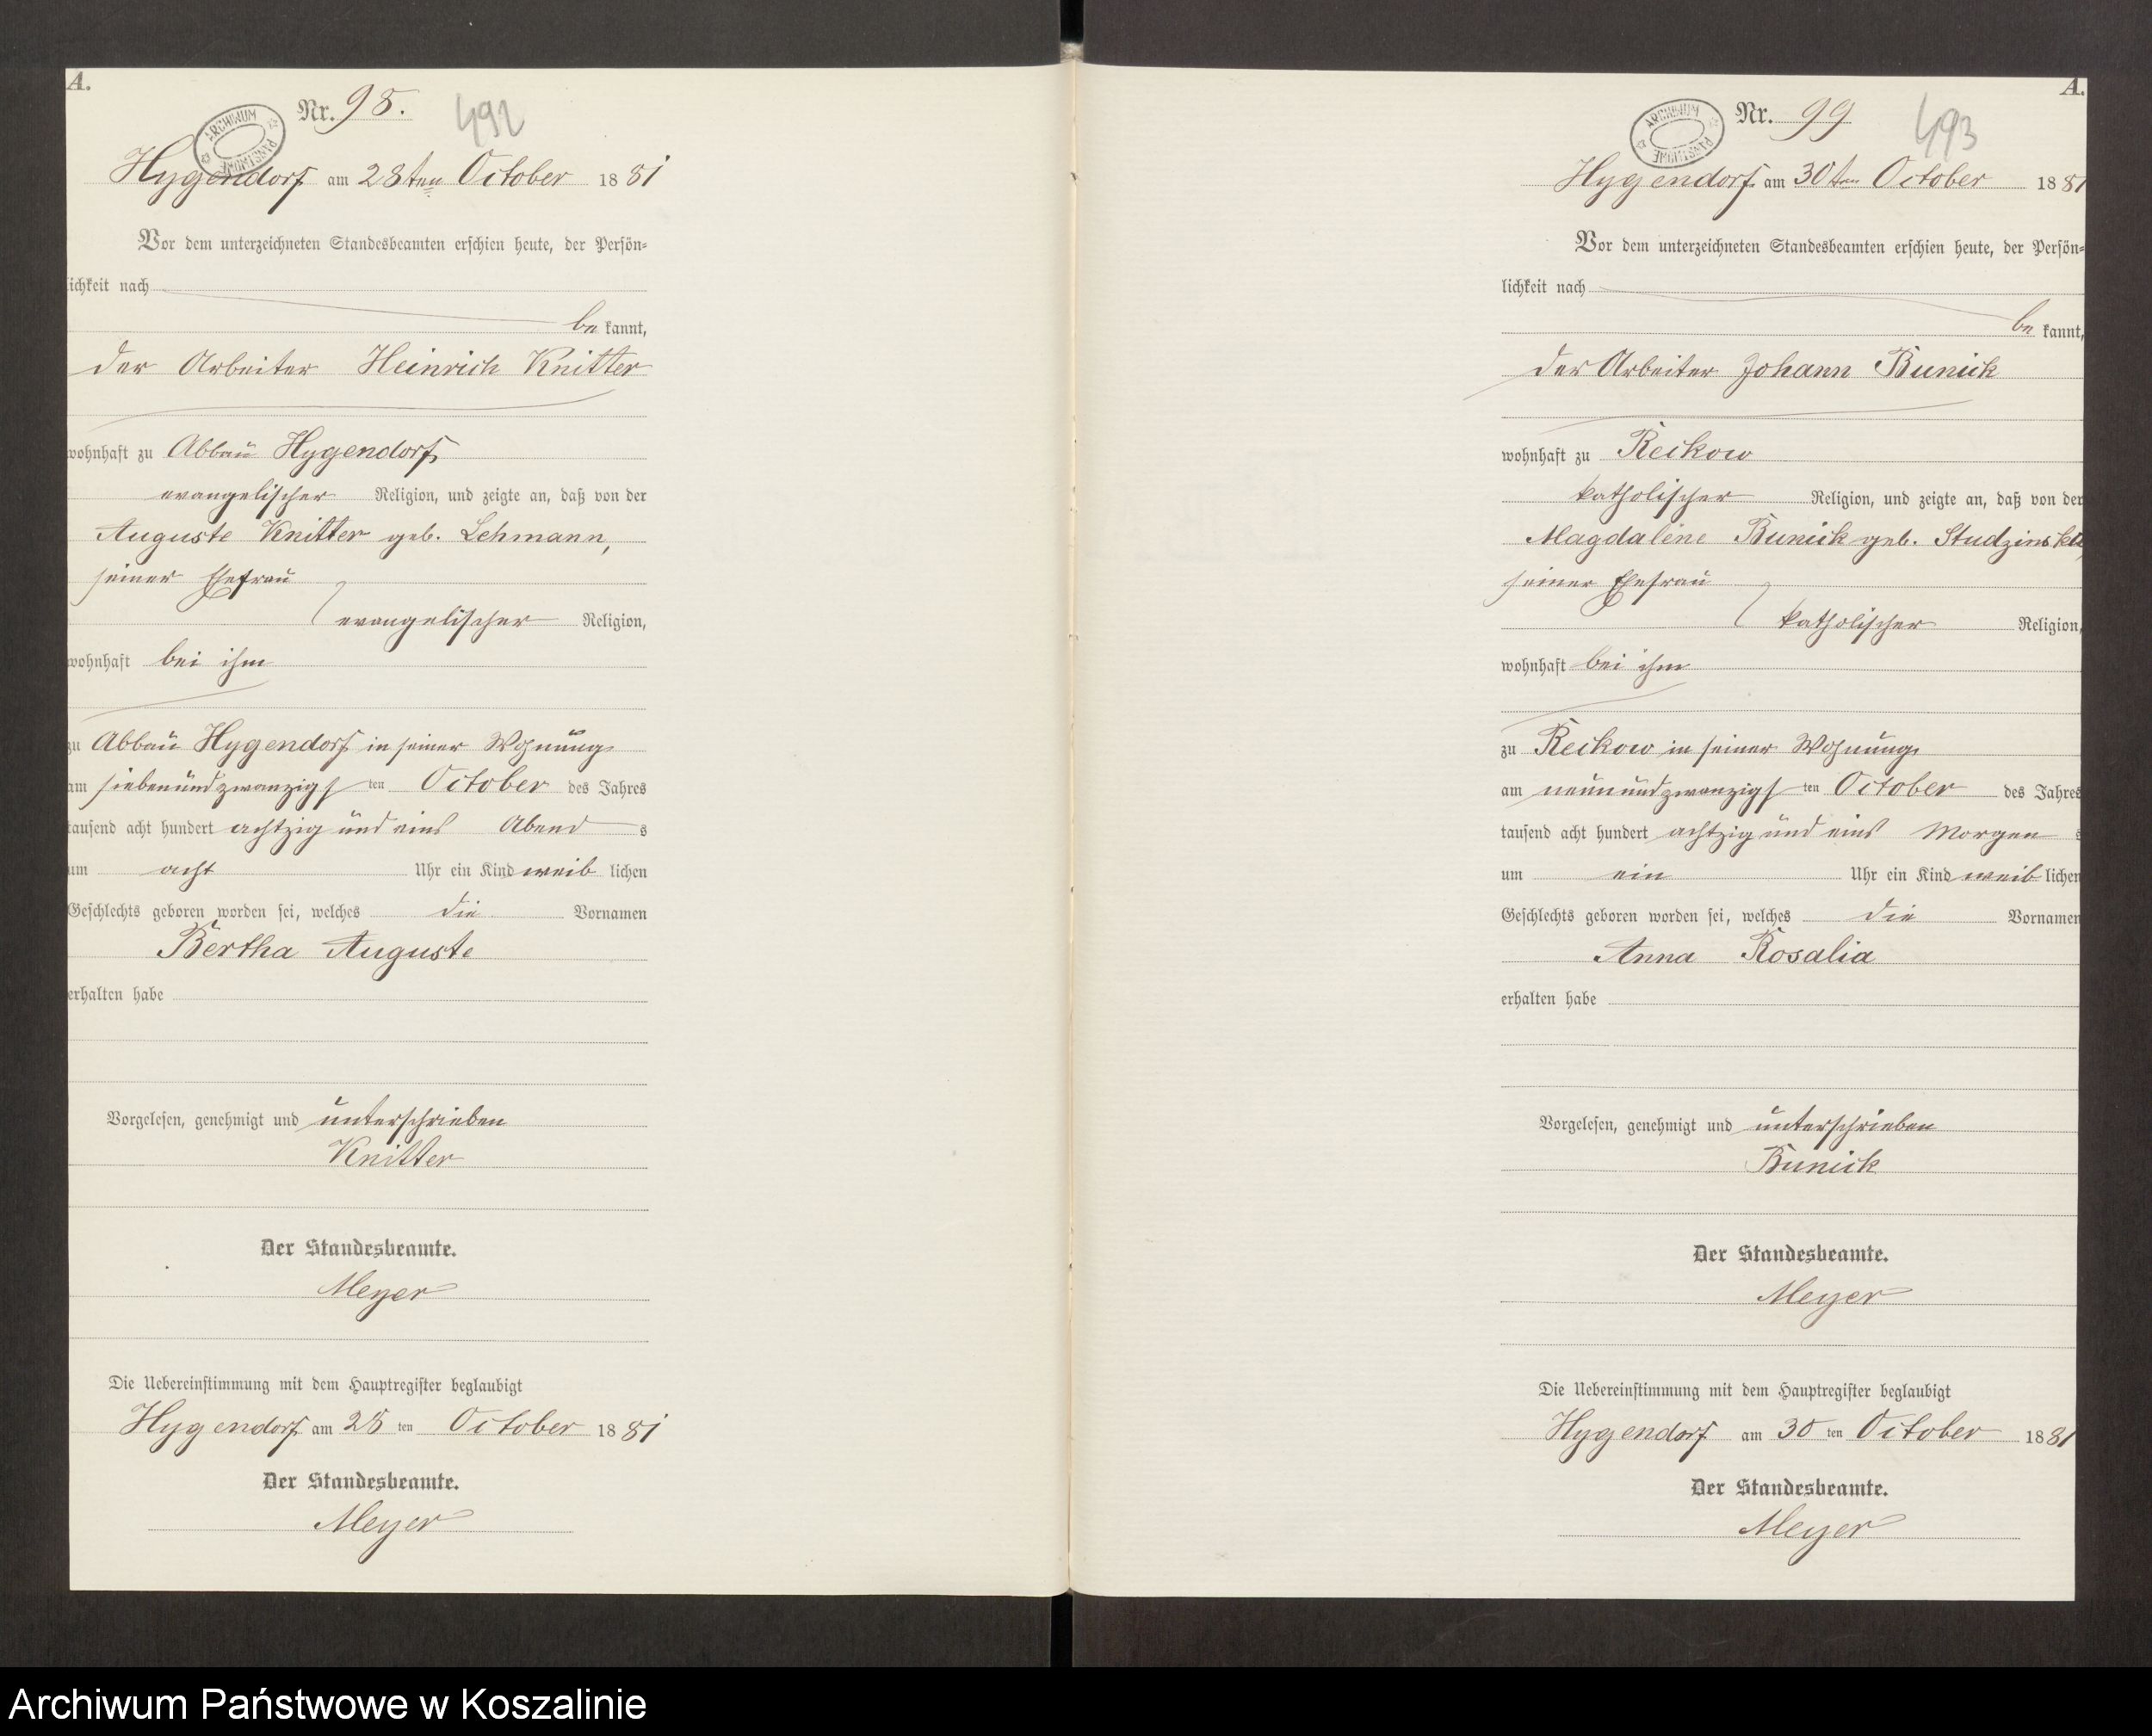 A.
Nr. 98.
492
ARCHIWUM PAŃSTWOWE
Hygendorf am 28ten October 1881
Vor dem unterzeichneten Standesbeamten erschien heute, der Persön=
lichkeit nach
be kannt,
der Arbeiter Heinrich Knitter
wohnhaft zu Abbau Hygendorf
evangelischer Religion, und zeigte an, daß von der
Auguste Knitter geb. Lehmann,
seiner Ehefrau
evangelischer Religion,
wohnhaft bei ihm
zu Abbau Hygendorf in seiner Wohnung
am siebenundzwanzigsten October des Jahres
tausend acht hundert achtzig und eins Abends
um acht Uhr ein Kind weiblichen
Geschlechts geboren worden sei, welches die Vornamen
Bertha Auguste
erhalten habe
Vorgelesen, genehmigt und unterschrieben
Knitter
Der Standesbeamte.
Meyer
Die Uebereinstimmung mit dem Hauptregister beglaubigt
Hygendorf am 28 ten October 1881
Der Standesbeamte.
Meyer
A.
Nr. 99
493
ARCHIWUM PAŃSTWOWE
Hygendorf am 30ten October 1881
Vor dem unterzeichneten Standesbeamten erschien heute, der Persön=
lichkeit nach
be kannt,
der Arbeiter Johann Bunick
wohnhaft zu Reckow
katholischer Religion, und zeigte an, daß von der
Magdalene Bunick geb. Studzinska
seiner Ehefrau
katholischer Religion,
wohnhaft bei ihm
zu Reckow in seiner Wohnung
am neunundzwanzigsten October des Jahres
tausend acht hundert achtzig und eins Morgens
um ein Uhr ein Kind weiblichen
Geschlechts geboren worden sei, welches die Vornamen
Anna Rosalia
erhalten habe
Vorgelesen, genehmigt und unterschrieben
Bunick
Der Standesbeamte.
Meyer
Die Uebereinstimmung mit dem Hauptregister beglaubigt
Hygendorf am 30 ten October 1881
Der Standesbeamte.
Meyer
Archiwum Państwowe w Koszalinie